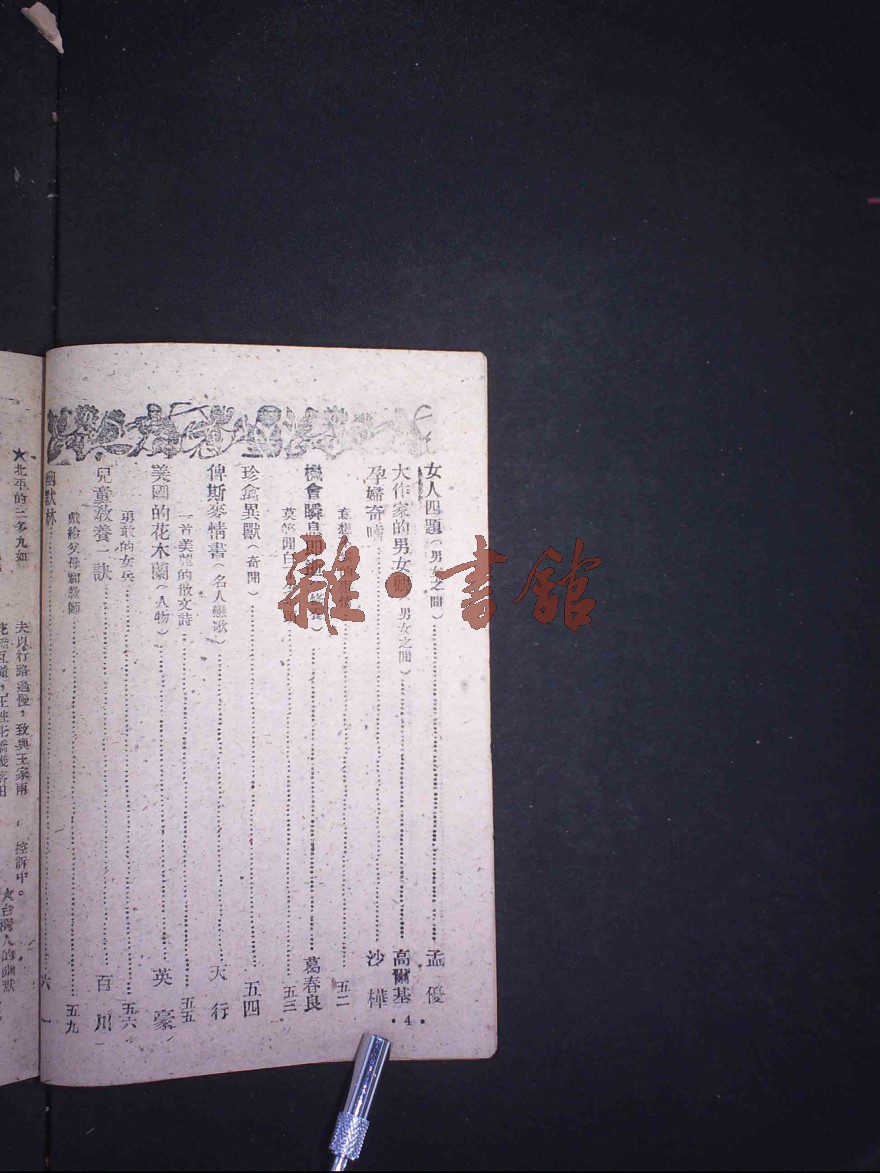 女人四題（男女之間）……孟優
大作家的男女觀（男女之間）……高爾基
孕婦奇嗜……沙樺
五二
機會瞬息即逝（修養）……葛春良
莫等閒白……五三
珍禽異獸（奇聞）……五四
俾斯麥情書（名人戀歌）……天行
一首美麗的散文詩……五五
美國的花木蘭（人物）……英豪
勇敢的女兵……五六
兒童教養一訣……百川
獻給父母和教師……五九
幽默林……六一
·4·
雜·書館
★北平的二多九如
夫以行路過慢，致與王家兩
控訴中。
★台灣人的幽默